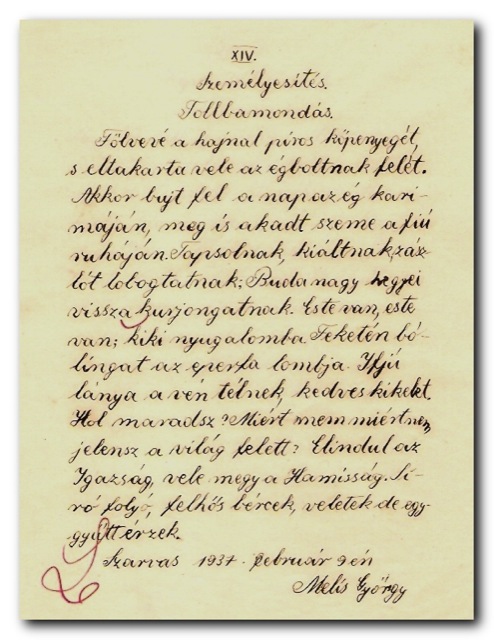 XIV.
Személyesítés.
Tollbamondás.
Fölvevé a hajnal piros köpenyegét,
s eltakarta vele az égboltnak felét.
Akkor bujt fel a nap az ég kari-
máján, meg is akadt szeme a fiú
ruháján. Tapsolnak, kiáltnak, zász-
lót lobogtatnak; Buda nagy hegyei
vissza kurjongatnak. Este van, este
van; kiki nyugalomba. Feketén bó-
lingat az eperfa lombja. Ifjú
lánya a vén télnek, kedves kikelet.
Hol maradsz? Miért mem miért nem,
jelensz a világ felett? Elindul az
Igazság, vele megy a Hamisság. Sí-
ró folyó, felhős bércek, veletek de egy-
gyütt érzek.
Szarvas 1937. február 9-én
Melis György